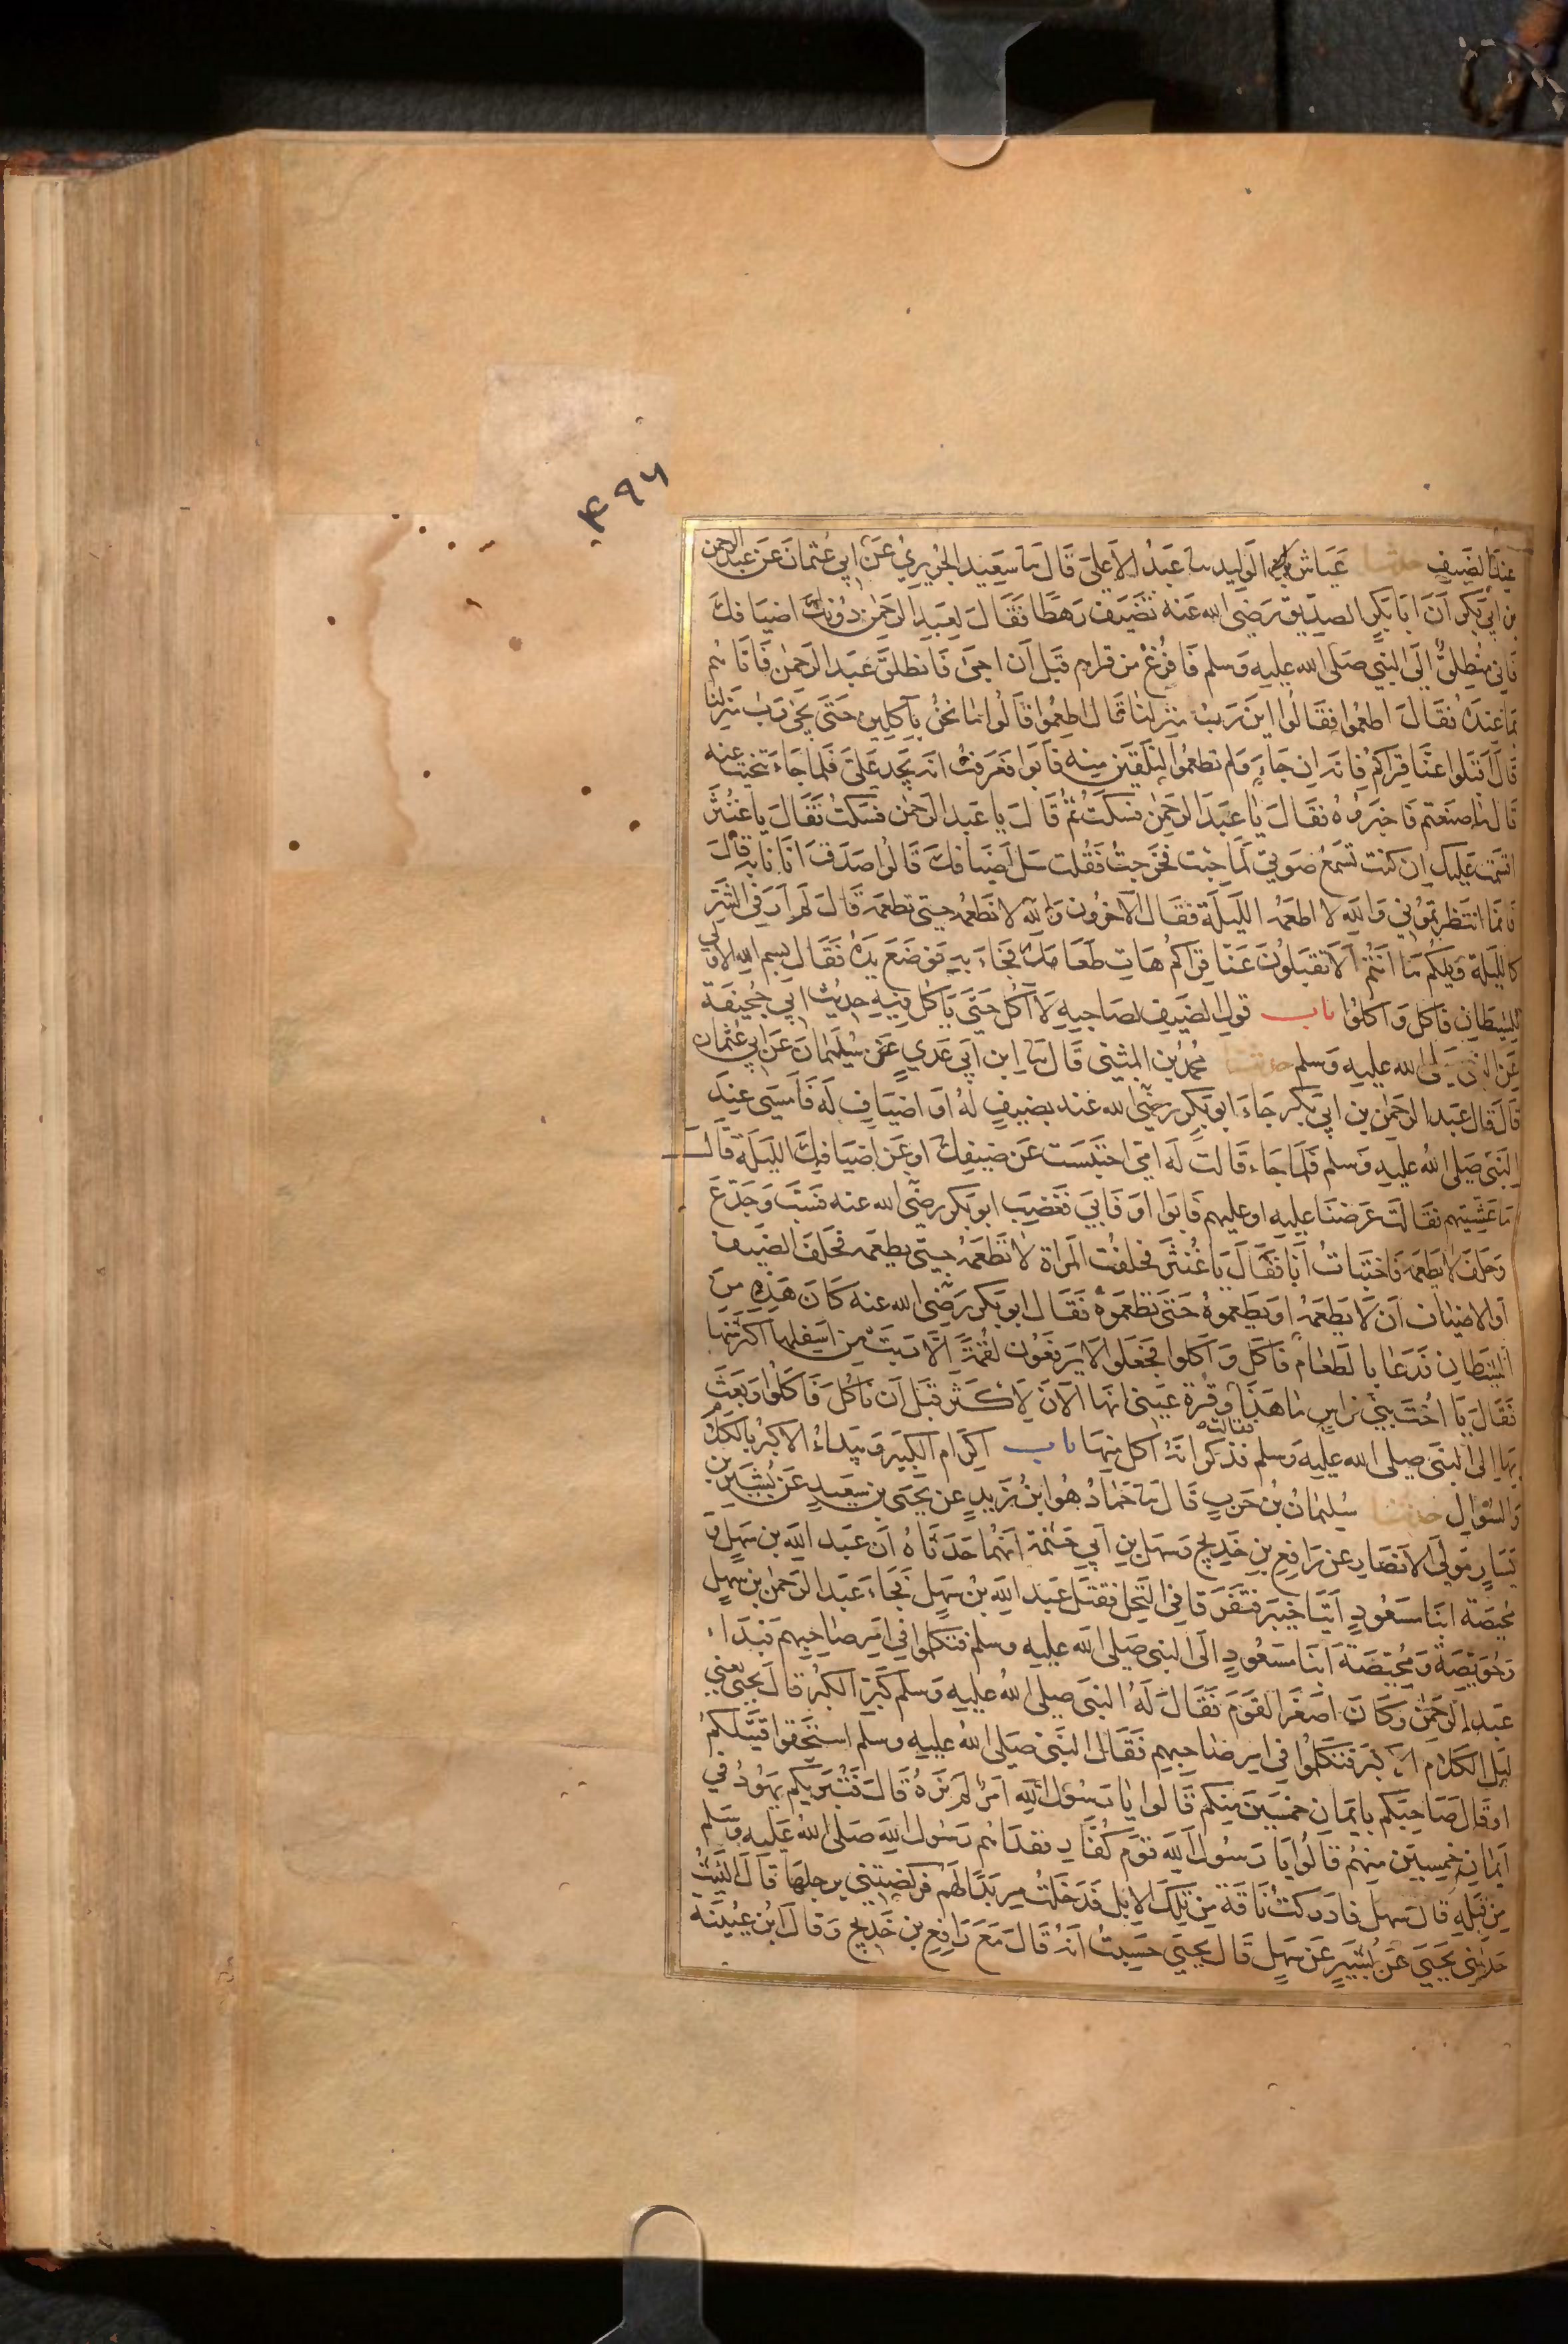 ۴۹۶
عند الضيف حدثنا عياش بن الوليد نا عبد الاعلى قال نا سعيد الجريري عن ابي عثمان عن عبد الرحمن
بن ابي بكر ان ابا بكر الصديق رضي الله عنه تضيف رهطا فقال لعبد الرحمن دونك اضيافك
فاني منطلق الى النبي صلى الله عليه وسلم فافرغ من قراهم قبل ان اجئ فانطلق عبد الرحمن فاتاهم
بما عنده فقال اطعموا فقالوا اين رب منزلنا قال اطعموا قالوا ما نحن بآكلين حتى يجئ رب منزلنا
قال اقبلوا عنا قراكم فانه ان جاء ولم تطعموا لنلقين منه فابوا فعرفت انه يجد علي فلما جاء تنحيت عنه
قال ما صنعتم فاخبروه فقال يا عبد الرحمن فسكت ثم قال يا عبد الرحمن فسكت فقال يا غنثر
اقسمت عليك ان كنت تسمع صوتي لما جئت فخرجت فقلت سل اضيافك قالوا صدق اتانا به قال
فانما انتظرتموني والله لا اطعمه الليلة فقال الآخرون والله لا نطعمه حتى تطعمه قال لم ار في الشر
كالليلة ويلكم ما انتم الا تقبلون عنا قراكم هات طعامك فجاء به فوضع يده فقال بسم الله الاولى
للشيطان فاكل واكلوا باب قول الضيف لصاحبه لا آكل حتى ياكل فيه حديث ابي جحيفة
عن النبي صلى الله عليه وسلم حدثنا محمد بن المثنى قال نا ابن ابي عدي عن سليمان عن ابي عثمان
قال قال عبد الرحمن بن ابي بكر جاء ابو بكر رضي الله عنه بضيف له او اضياف له فامسى عند
النبي صلى الله عليه وسلم فلما جاء قالت له امي احتبست عن ضيفك او عن اضيافك الليلة قال
ما عشيتهم فقالت عرضنا عليه او عليهم فابوا او فابى فغضب ابو بكر رضي الله عنه فسب وجدع
وحلف لا يطعمه فاختبات انا فقال يا غنثر فحلفت المراة لا تطعمه حتى يطعمه فحلف الضيف
او الاضياف ان لا يطعمه او يطعموه حتى تطعموه فقال ابو بكر رضي الله عنه كان هذه من
الشيطان فدعا بالطعام فاكل واكلوا فجعلوا لا يرفعون لقمة الا ربت من اسفلها اكثر منها
فقال يا اخت بني فراس ما هذا فقالت وقرة عيني انها الآن لاكثر قبل ان ناكل فاكلوا وبعث
بها الى النبي صلى الله عليه وسلم فذكر انه اكل منها باب اكرام الكبير ويبداء الاكبر بالكلام
والسؤال حدثنا سليمان بن حرب قال نا حماد هو ابن زيد عن يحيى بن سعيد عن بشير بن
يسار مولى الانصار عن رافع بن خديج وسهل بن ابي حثمة انهما حدثاه ان عبد الله بن سهل و
محيصة ابنا مسعود اتيا خيبر فتفرقا في النخل فقتل عبد الله بن سهل فجاء عبد الرحمن بن سهل
وحويصة ومحيصة ابنا مسعود الى النبي صلى الله عليه وسلم فتكلموا في امر صاحبهم فبداء
عبد الرحمن وكان اصغر القوم فقال له النبي صلى الله عليه وسلم كبر الكبر قال يحيى يعني
ليلي الكلام الاكبر فتكلموا في امر صاحبهم فقال النبي صلى الله عليه وسلم استحقوا قتيلكم
او قال صاحبكم بايمان خمسين منكم قالوا يا رسول الله امر لم نره قال فتبريكم يهود في
ايمان خمسين منهم قالوا يا رسول الله قوم كفار ففداهم رسول الله صلى الله عليه وسلم
من قبله قال سهل فادركت ناقة من تلك الابل فدخلت مربدا لهم فركضتني برجلها قال الليث
حدثني يحيى عن بشير عن سهل قال يحيى حسبت انه قال مع رافع بن خديج وقال ابن عيينة